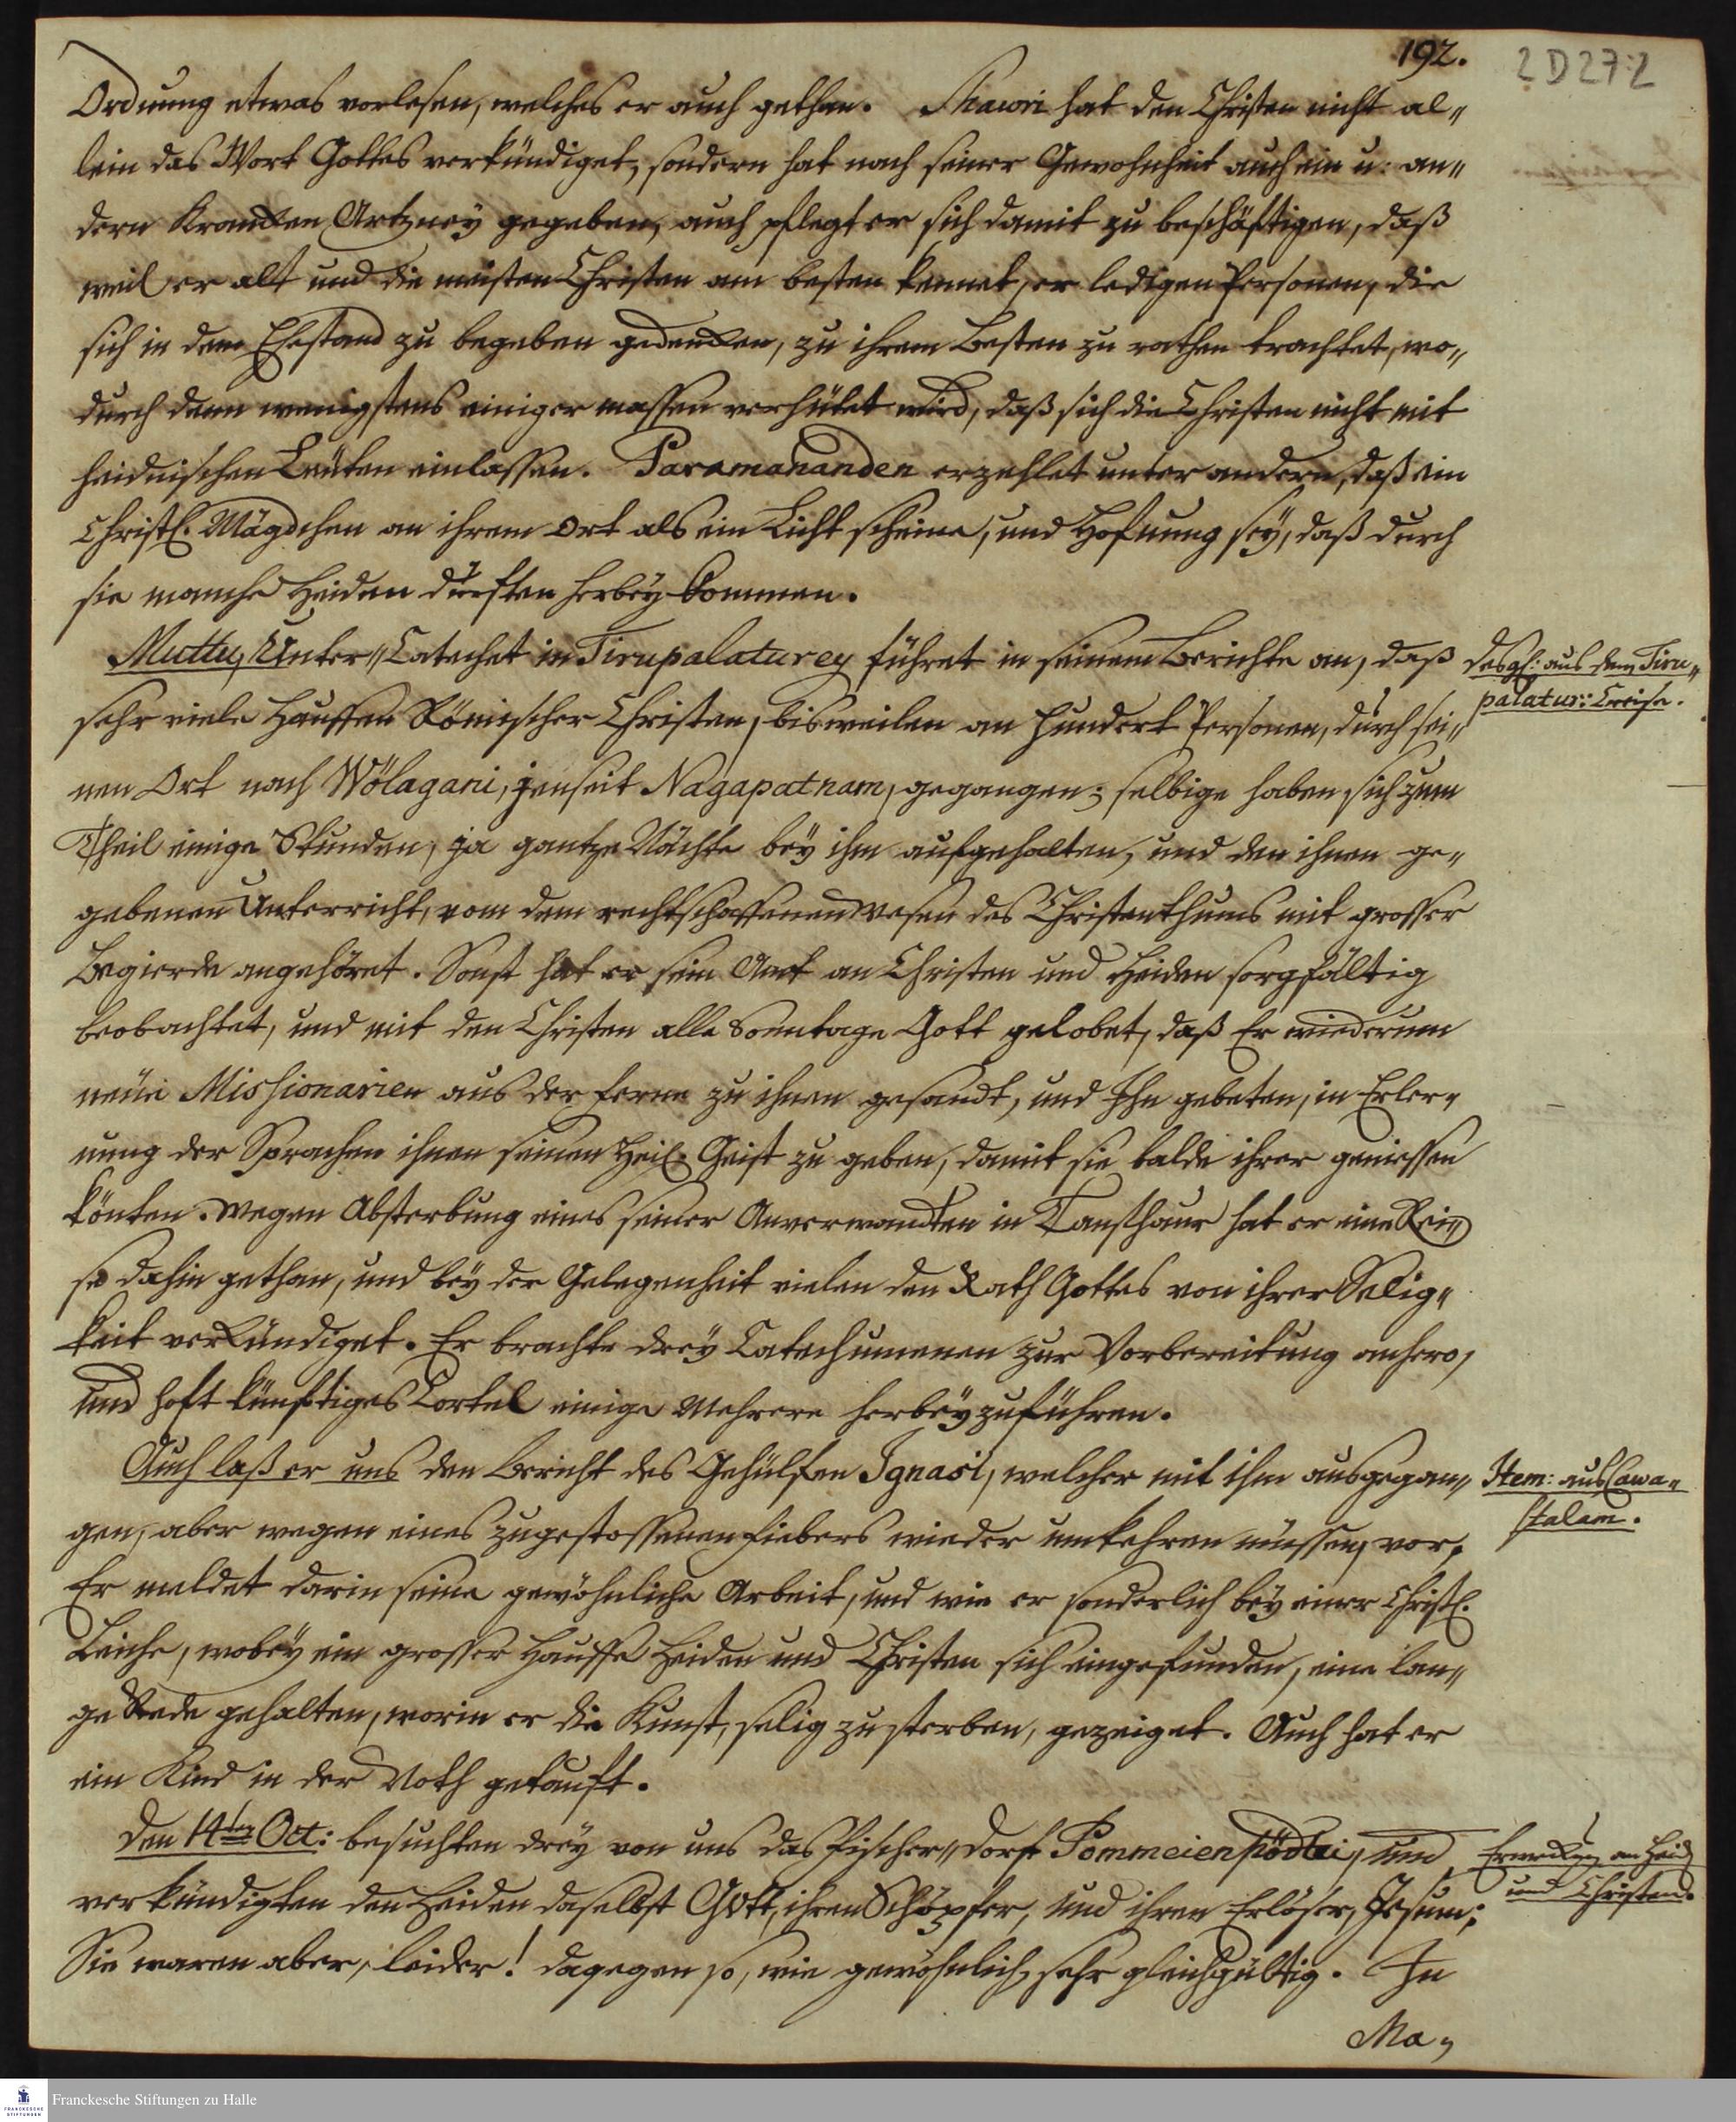 192.
2 D 27:2
Ordnung etwas vorlesen, welches er auch gethan. Mawri hat den Christen nicht al„
lein das Wort Gottes verkündiget, sondern hat nach seiner Gewohnheit auch ein u: an„
dern Krancken Artzney gegeben, auch pflegt er sich damit zu beschäftigen, daß
weil er alt und die meisten Christen am besten kennet, er ledigen Personen, die
sich in dem Ehestand zu begeben gedencken, zu ihrem Besten zu rathen trachtet, wo„
durch denn wenigstens einiger massen verhütet wird, daß sich die Christen nicht mit
heidnischen Leuten einlassen. Paramananden erzehlet unter andern, daß ein
Christl. Mägdchen an ihrem Ort als ein Licht scheine, und Hofnung sey, daß durch
sie manche Heiden dürften herbey kommen.
Muttu, Unter„Catechet in Tirupalaturey führet in seinem Berichte an, daß
desgl: aus dem Tiru„
palatur: Creise.
sehr viele Hauffen Römischer Christen, bisweilen an hundert Personen, durch sei„
nen Ort nach Wölagani, jenseit Nagapatnam, gegangen; selbige haben sich zum
Theil einige Stunden, ja gantze Nächte bey ihm aufgehalten, und den ihnen ge„
gebenen Unterricht, vom dem rechtschaffenen Wesen des Christenthums mit grosser
Begierde angehöret. Sonst hat er sein Amt an Christen und Heiden sorgfältig
beobachtet, und mit den Christen alle Sonntage Gott gelobet, daß Er wiederum
neue Missionarien aus der ferne zu ihnen gesandt, und Ihn gebeten, in Erler„
nung der Sprachen ihnen seinen Heil. Geist zu geben, damit sie balde ihrer geniessen
könten. Wegen Absterbung eines seiner Anverwandten in Tanschaur hat er eine Rei„
se dahin gethan, und bey der Gelegenheit vielen den Rath Gottes von ihrer Selig„
keit verkündiget. Er brachte drey Catechumenen zur Vorbereitung anhero,
und hoft künftiges Cortel einige Mehrere herbeyzuführen.
Auch laß er uns den Bericht des Gehülfen Ignasi, welcher mit ihm ausgegan„
Item: aus Cawa„
stalam.
gen, aber wegen eines zugestossenen Fiebers wieder umkehren müssen, vor.
Er meldet darin seine gewöhnliche Arbeit, und wie er sonderlich bey einer Christl.
Leiche, wobey ein grosser Hauffe Heiden und Christen sich eingefunden, eine lan„
ge Rede gehalten, worin er die Kunst, selig zu sterben, gezeiget. Auch hat er
ein Kind in der Noth getauft.
Den 14ten Oct: besuchten drey von uns das Fischer„dorf Pommeien, und
Erweckung an Heid.
und Christen.
verkündigten den Heiden daselbst Gott, ihren Schöpfer, und ihren Erlöser, Jesum;
Sie waren aber, leider! dagegen so, wie gewöhnlich, sehr gleichgültig. In
Ma„
Franckesche Stiftungen zu Halle